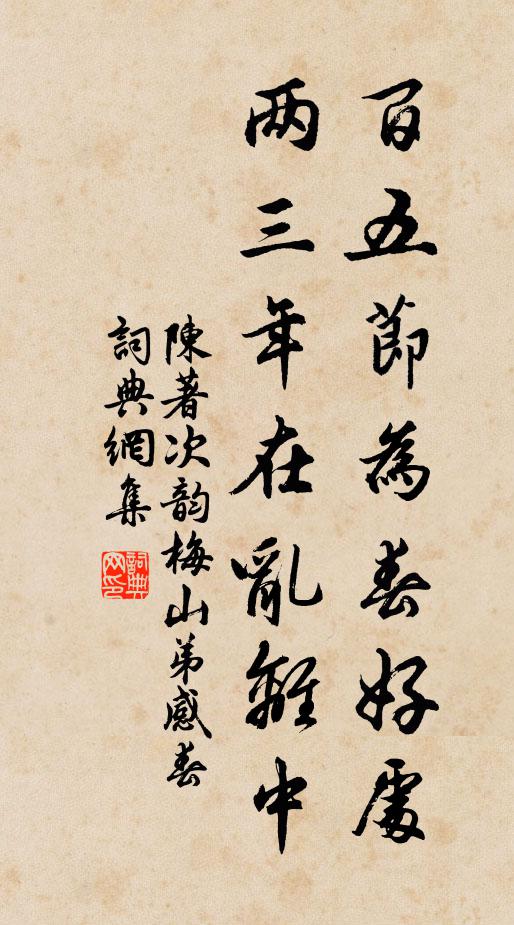 百五節為春好處
两三年在亂離中
陳著次韵梅山弟感春
詞典網集
詞典網印